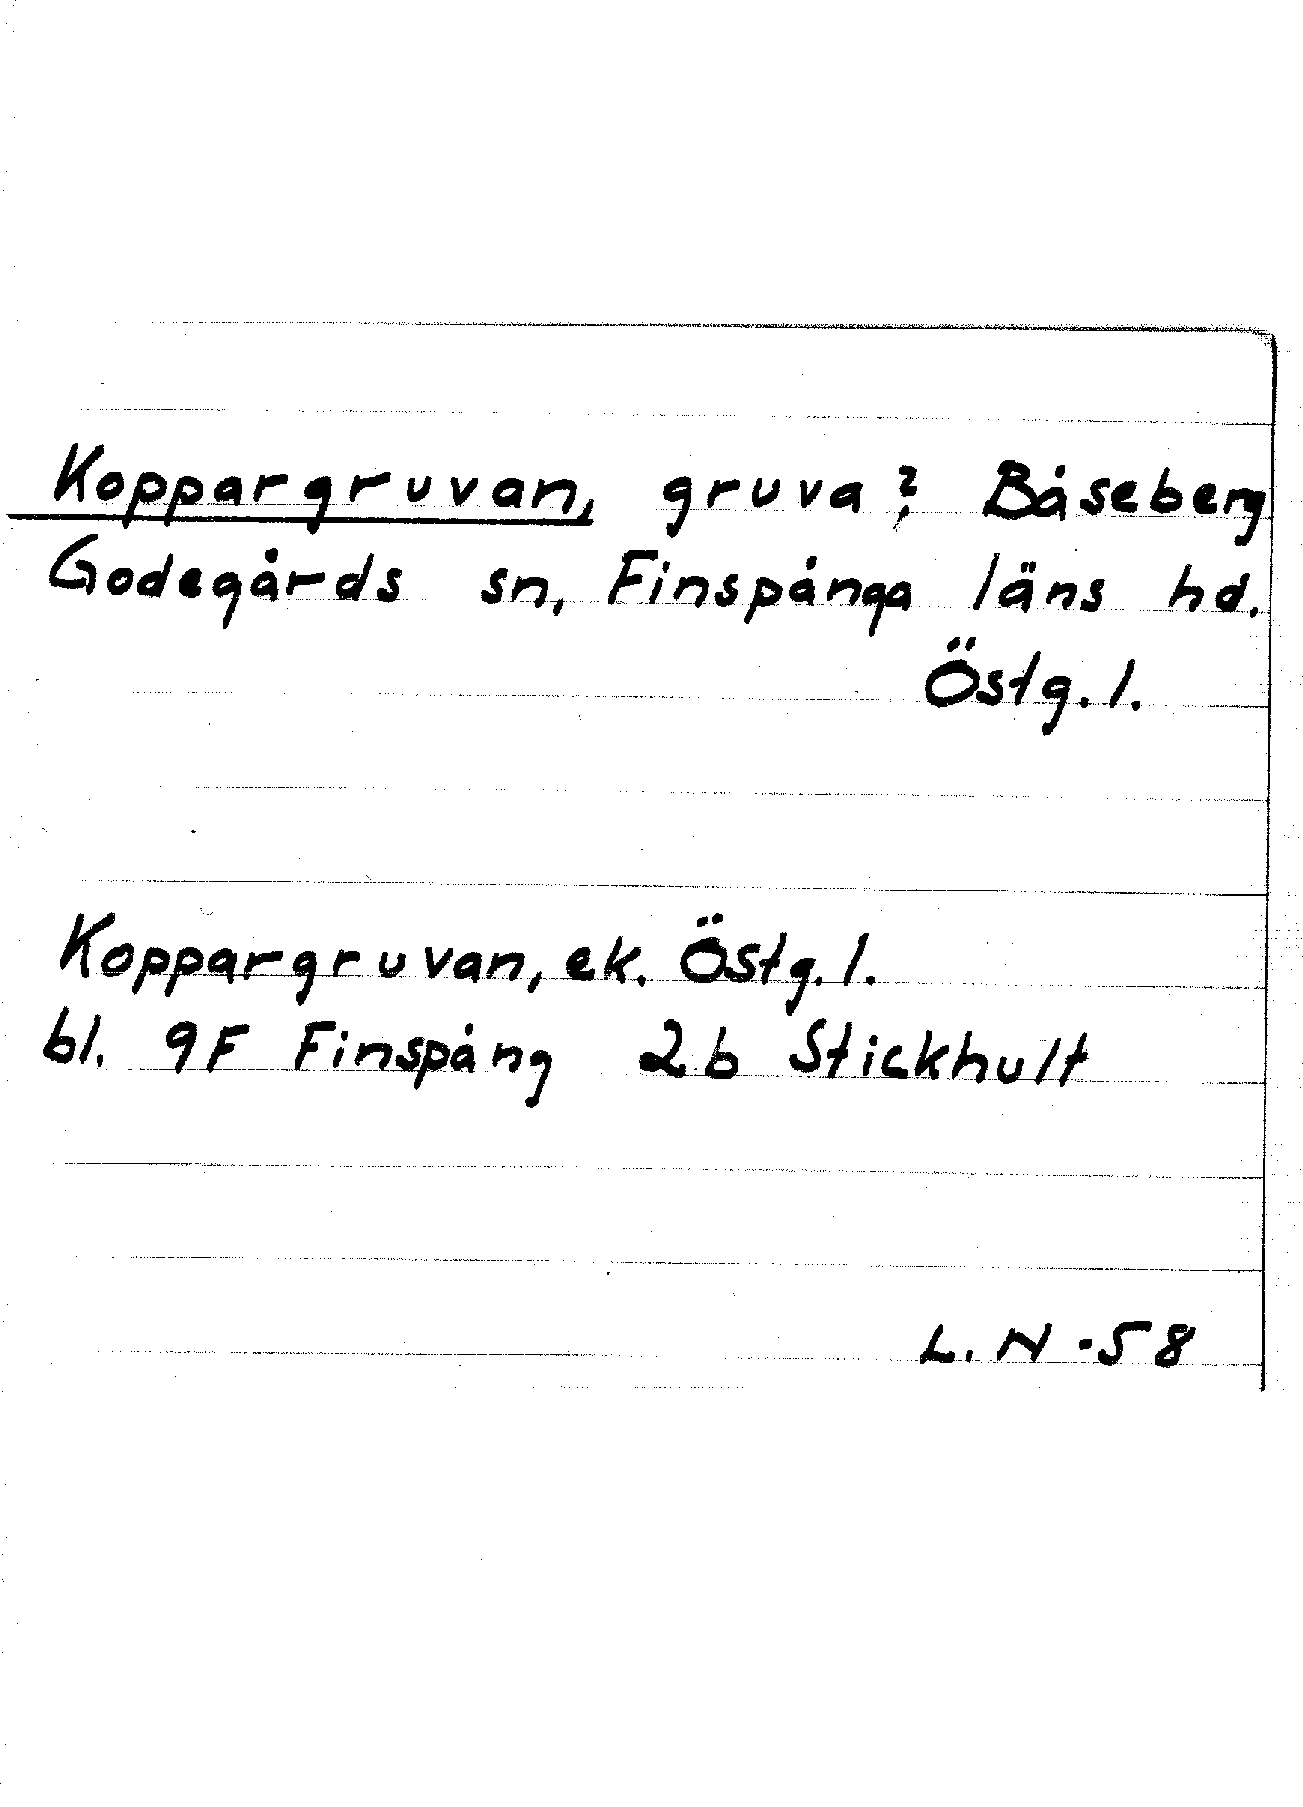 Koppargruvan, gruva?, Båseberg
Godegårds sn, Finspånga läns hd.
Östg. l.
Koppargruvan, ek. Östg. l.
bl. 9F Finspång 2b Stickhult
L. N -58